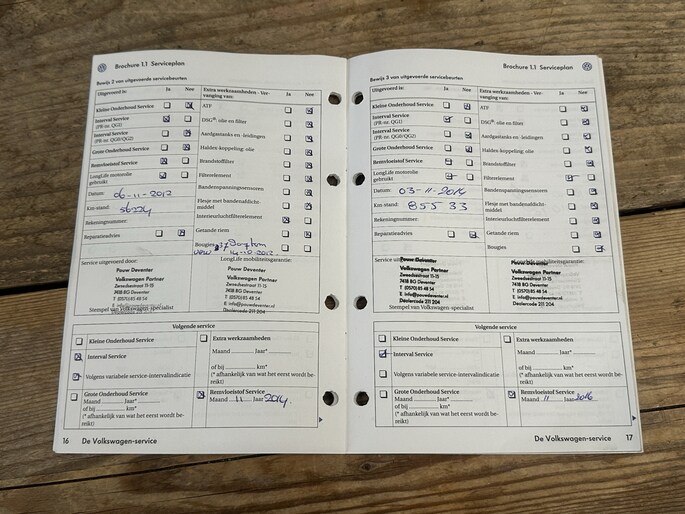 Brochure 1.1 Serviceplan
Bewijs 2 van uitgevoerde servicebeurten
Uitgevoerd is: Ja Nee
Kleine Onderhoud Service
Interval Service
(PR-nr. QG1)
Interval Service
(PR-nr. QG0/QG2)
Grote Onderhoud Service
Remvloeistof Service
LongLife motorolie
gebruikt
Datum: 06-11-2012
Km-stand: 56224
Rekeningnummer:
Reparatieadvies
Extra werkzaamheden - Ver-
vanging van: Ja Nee
ATF
DSG®: olie en filter
Aardgastanks en -leidingen
Haldex-koppeling: olie
Brandstoffilter
Filterelement
Bandenspanningssensoren
Flesje met bandenafdicht-
middel
Interieurluchtfilterelement
Getande riem
Bougies
14-10-2012
Service uitgevoerd door:
LongLife mobiliteitsgarantie:
Pouw Deventer
Volkswagen Partner
Zweedsestraat 11-15
7418 BG Deventer
T (0570) 85 48 54
E info@pouwdeventer.nl
Dealercode 211 204
Pouw Deventer
Volkswagen Partner
Zweedsestraat 11-15
7418 BG Deventer
T (0570) 85 48 54
E info@pouwdeventer.nl
Dealercode 211 204
Stempel van Volkswagen-specialist
Volgende service
Kleine Onderhoud Service
Interval Service
Volgens variabele service-intervalindicatie
Grote Onderhoud Service
Maand ........ Jaar* ........
of bij ........ km*
(* afhankelijk van wat het eerst wordt be-
reikt)
Extra werkzaamheden
Maand ........ Jaar* ........
of bij ........ km*
(* afhankelijk van wat het eerst wordt be-
reikt)
Remvloeistof Service
Maand 11 Jaar 2014
16 De Volkswagen-service
Brochure 1.1 Serviceplan
Bewijs 3 van uitgevoerde servicebeurten
Uitgevoerd is: Ja Nee
Kleine Onderhoud Service
Interval Service
(PR-nr. QG1)
Interval Service
(PR-nr. QG0/QG2)
Grote Onderhoud Service
Remvloeistof Service
LongLife motorolie
gebruikt
Datum: 03-11-2014
Km-stand: 85533
Rekeningnummer:
Reparatieadvies
Extra werkzaamheden - Ver-
vanging van: Ja Nee
ATF
DSG®: olie en filter
Aardgastanks en -leidingen
Haldex-koppeling: olie
Brandstoffilter
Filterelement
Bandenspanningssensoren
Flesje met bandenafdicht-
middel
Interieurluchtfilterelement
Getande riem
Bougies
Service uitgevoerd door:
LongLife mobiliteitsgarantie:
Pouw Deventer
Volkswagen Partner
Zweedsestraat 11-15
7418 BG Deventer
T (0570) 85 48 54
E info@pouwdeventer.nl
Dealercode 211 204
Pouw Deventer
Volkswagen Partner
Zweedsestraat 11-15
7418 BG Deventer
T (0570) 85 48 54
E info@pouwdeventer.nl
Dealercode 211 204
Stempel van Volkswagen-specialist
Volgende service
Kleine Onderhoud Service
Interval Service
Volgens variabele service-intervalindicatie
Grote Onderhoud Service
Maand ........ Jaar* ........
of bij ........ km*
(* afhankelijk van wat het eerst wordt be-
reikt)
Extra werkzaamheden
Maand ........ Jaar* ........
of bij ........ km*
(* afhankelijk van wat het eerst wordt be-
reikt)
Remvloeistof Service
Maand 11 Jaar 2016
De Volkswagen-service 17